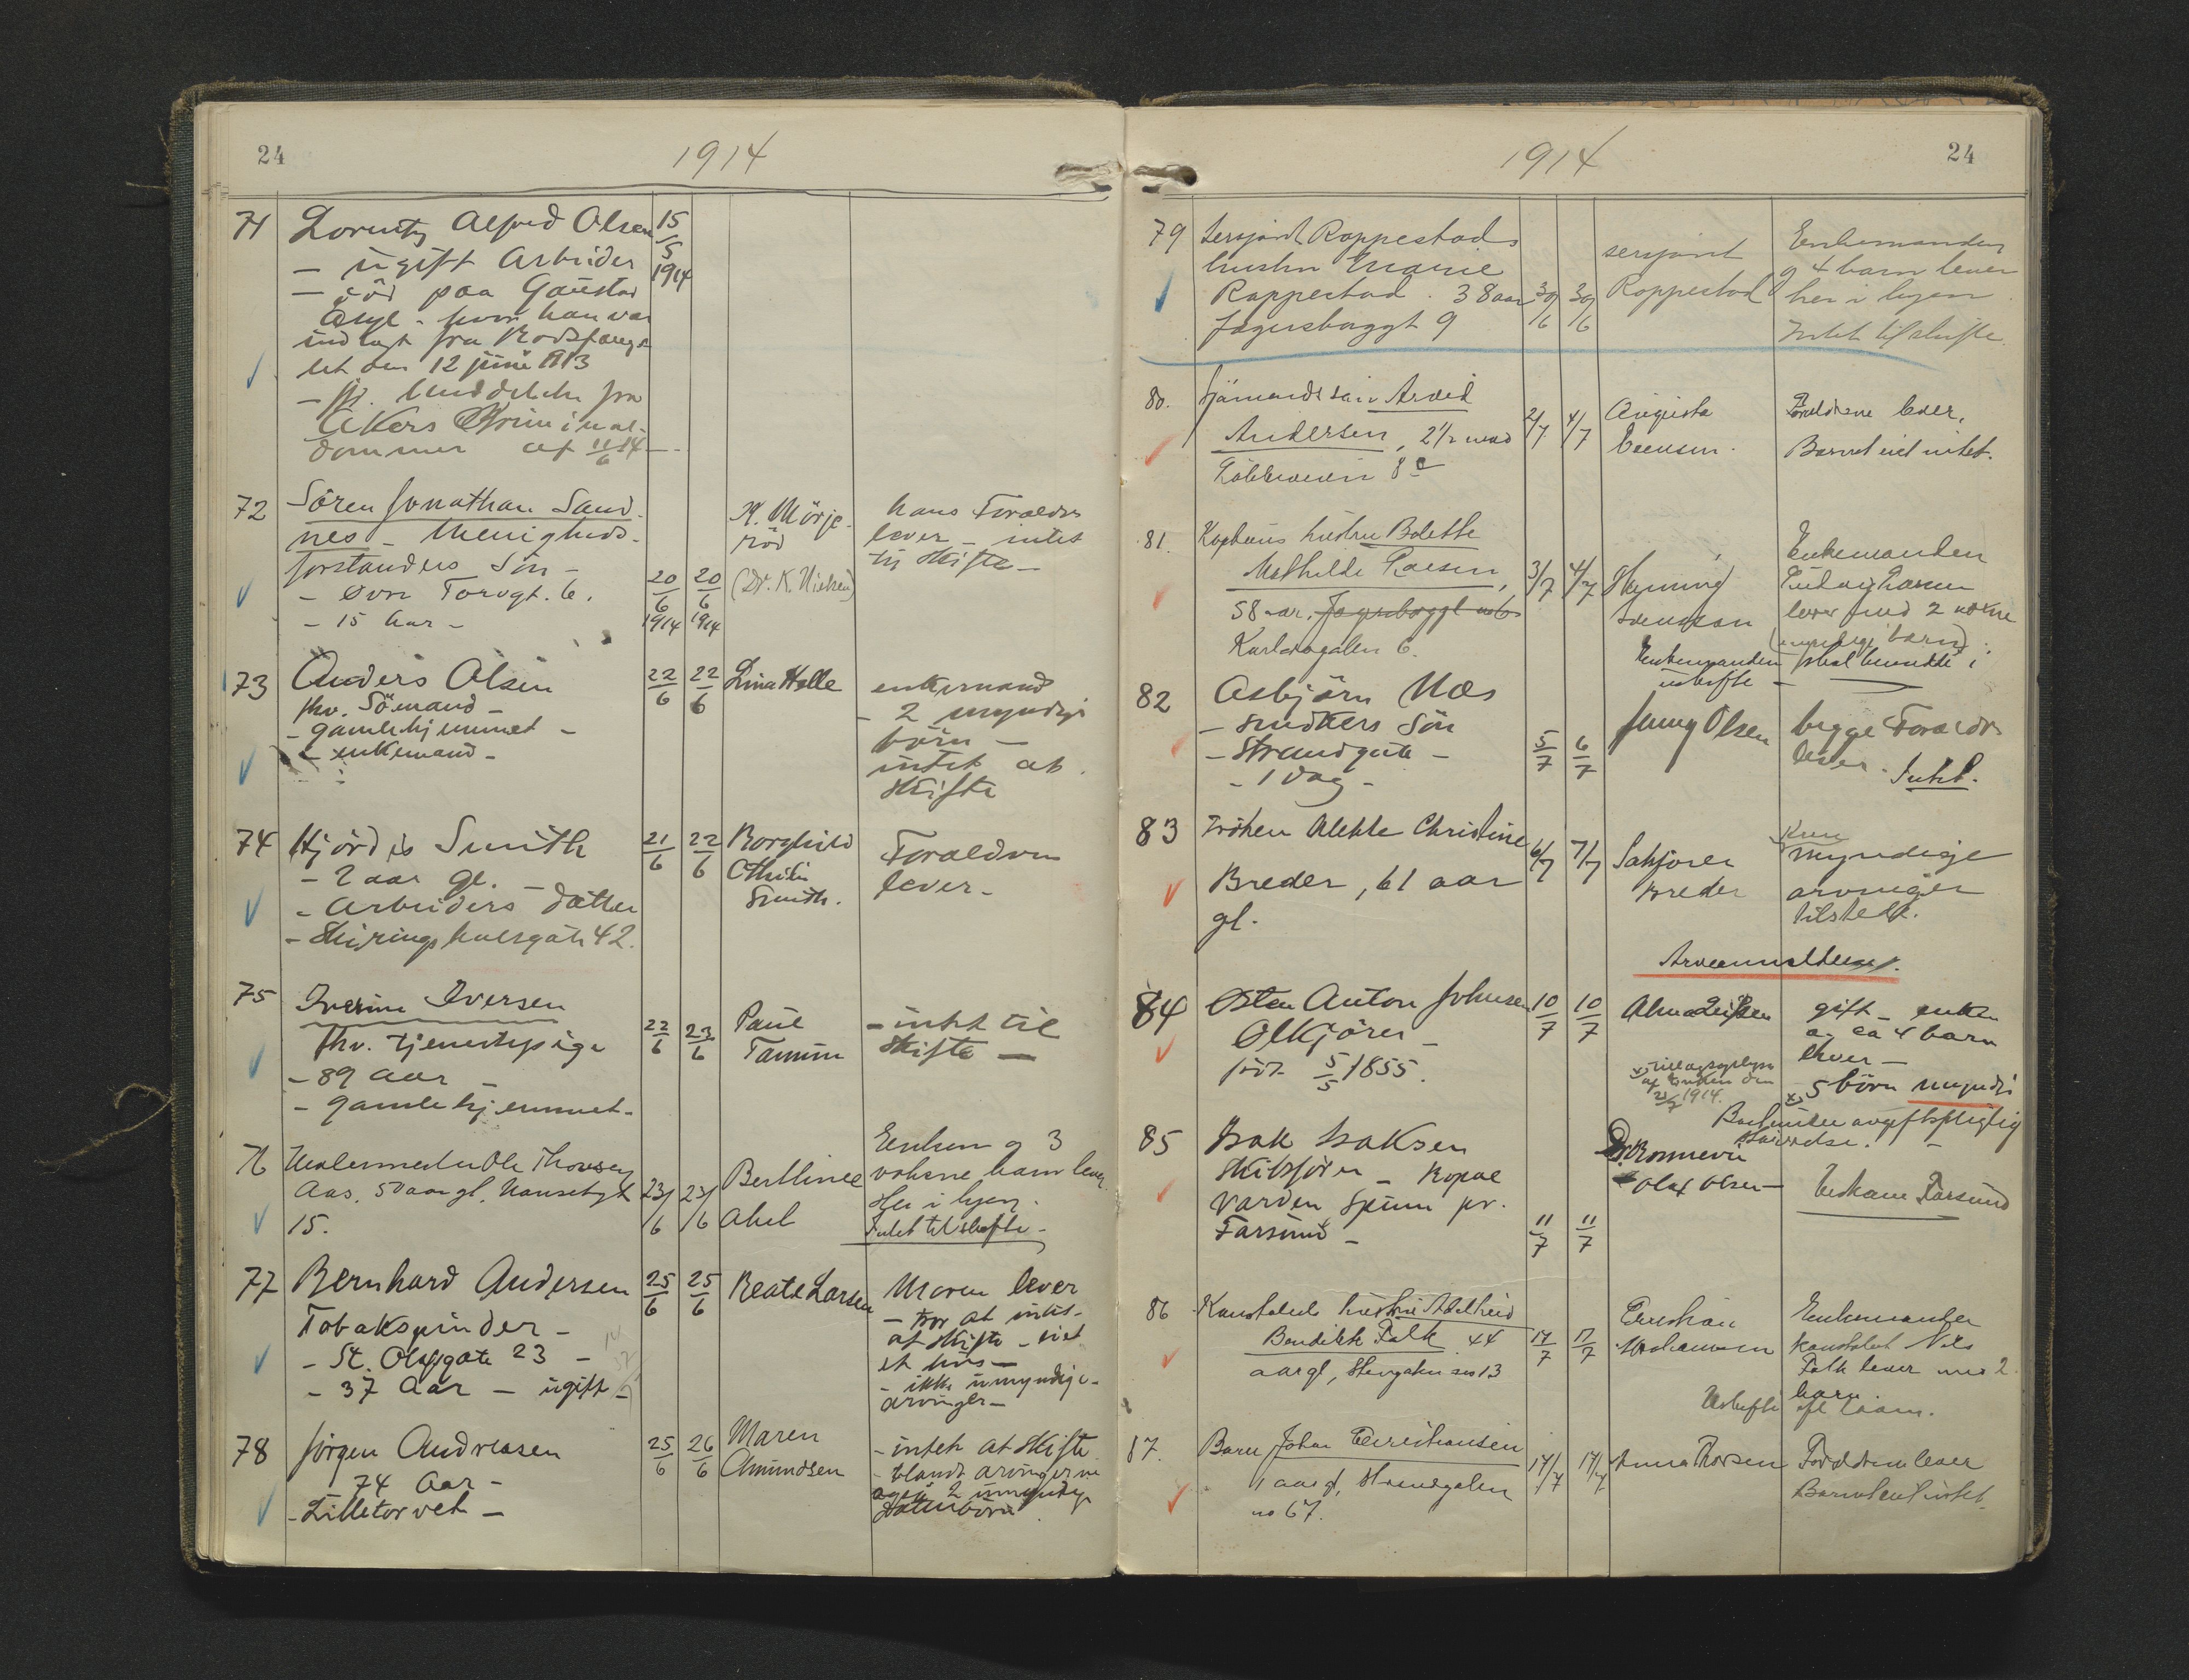 24
1914
71 Lorentz Alfred Olsen 15/5 1914
- ugift Arbeider
- död paa Gaustad
Asyl - hvor han var
indlagt fra Bodsfængs
let den 12 juni 1913
- fr. Meddelelse fra
Akers Kriminal-
dommer af 11/6 14 -
72 Sören Jonathan Sand-
nes - Menigheds-
forstanders Sön -
- Øvre Torvgt. 6.
- 15 Aar -
20/6 1914 20/6 1914
K. Mörje-
röd
(Dr. K. Nielsen)
hans Forældre
lever - intet
til Skifte -
73 Anders Olsen
fhv. Sömand -
- gamlehjemmet -
- enkemand -
22/6 22/6 Lina Helle
enkemand
- 2 myndige
börn -
intet at
Skifte
74 Hjördis Smith
- 2 aar gl. -
- Arbeiders Datter
- Skiringssalsgate 42.
21/6 22/6 Borghild
Othilie
Smith.
Forældrene
lever -
75 Iverine Iversen
fhv. tjenestepige
- 89 Aar -
- gamlehjemmet -
22/6 23/6 Paul
Tamm
- intet til
Skifte -
76 Malermester Ole Thorsen
Aas, 50 aar gl. Nansetgt
15.
23/6 23/6 Berthine
Abel
Enken og 3
voksne barn lever
her i byen.
Intet til skifte -
77 Bernhard Andersen
Tobakspinder -
- St. Olafsgate 23 -
- 37 Aar - ugift -
25/6 25/6 Beate Larsen
Moren lever
- tror at intet
at Skifte - eiet
et hus -
- ikke umyndige -
arvinger -
78 Jörgen Andreasen
74 Aar -
- Lilletorvet -
25/6 26/6 Maren
Amundsen
- intet at Skifte
- blandt arvingerne
også 2 umyndige
Datterbörn
1914
24
79 Sersjant Roppestads
hustru Marie
Roppestad. 38 aar
Jegersborggt 9
30/6 30/6
sersjant
Roppestad
Enkemanden
og 4 barn lever
her i byen
Intet til skifte.
80. Sjömands sön Arvid
Andersen, 2 1/2 mnd
8 c
2/7 4/7
Augusta
Forældrene lever.
Barnet eiet intet.
81. Kapteins hustru Bolette
Mathilde Larsen,
58 aar. Jegersborggt
Karlsrogaten 6.
3/7 4/7
Henning
Svendsen
Enkemanden
Ludvig Larsen
lever med 2 voksne
(myndige barn).
Enkemanden skal beholde i
uskifte -
82 Asbjörn Næs
- snedkers Sön
- Strandgate -
- 1 Dag -
5/7 6/7
Jenny Olsen
begge Foræld.
lever. Intet.
83 Fröken Alethe Christine
Breder, 61 aar
gl.
6/7 7/7
Sakförer
Breder
Kun
myndige
arvinger
tilstede.
Arveanmeldelse.
84 Østen Anton Johnsen
Ølkjörer -
född 5/5 1855.
10/7 10/7
gift - enken
og ca 4 barn
lever -
x) 5 börn myndige
x) af Enken den
21/7 1914.
85 Isak Isaksen
Skibsförer - Kopal
Varden Spinn pr.
Farsund -
11/7 11/7
Dr. Ronnevie
Olaf Olsen -
Farsund
86 Konstabels hustru Adelheid
Bendikte Falk 44
aar gl, Storgaten no 13
17/7 17/7
Enkemanden
konstabel Nils
Falk lever med 2
barn.
Uskifte
87. Barn Johan Christiansen
1 aar gl, Strandgaten
no 67.
17/7 17/7
Anna Thorsen
Forældrene lever